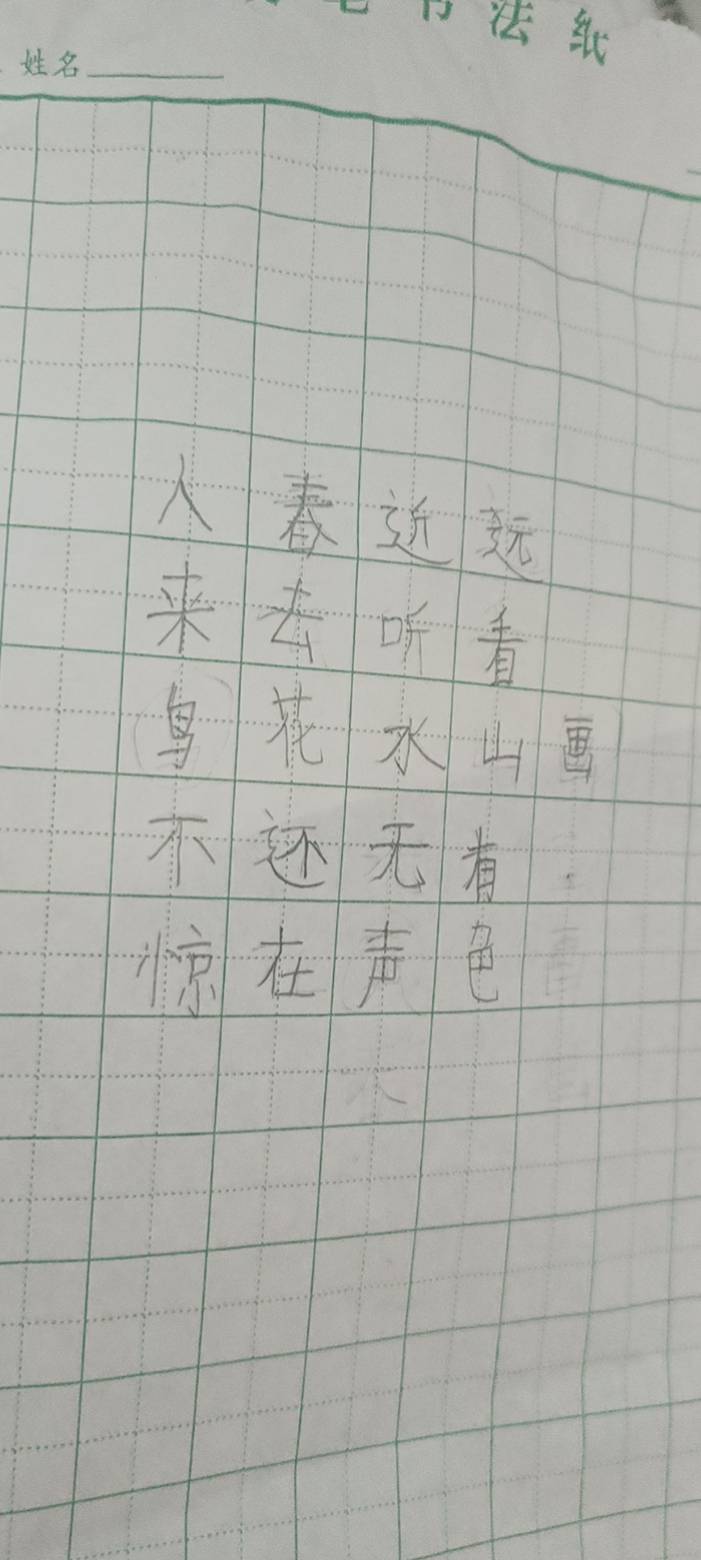 法纸
姓名
画
远看山有色
近听水无声
春去花还在
人来鸟不惊